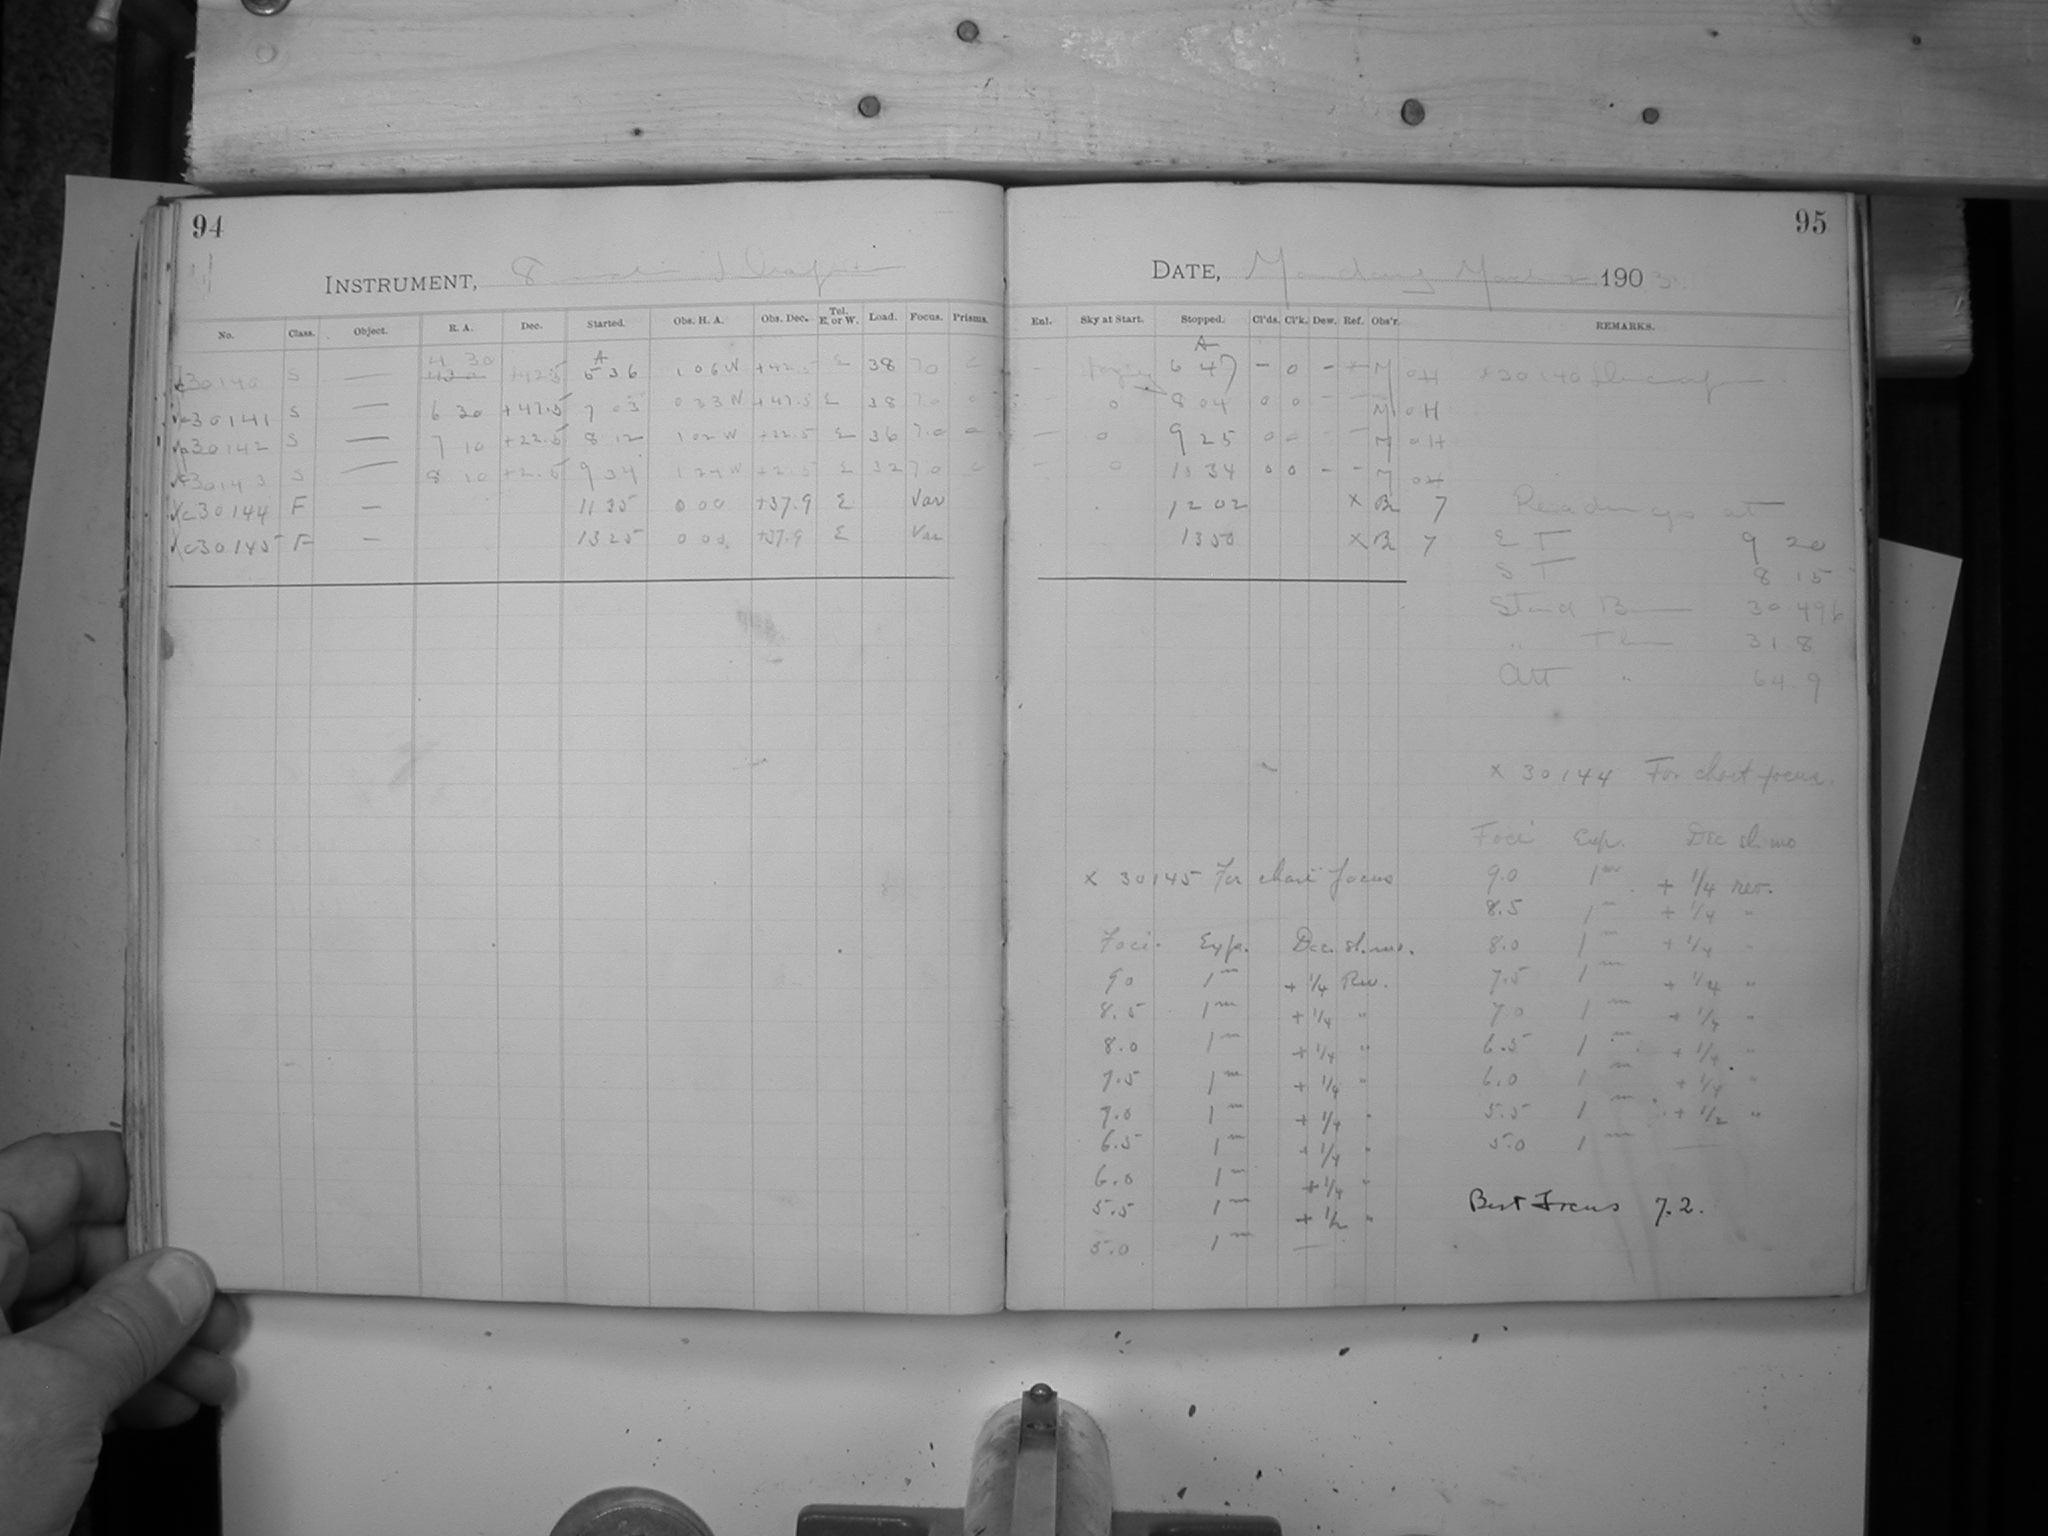 94
INSTRUMENT, 8 inch Draper
No. Class. Object. R. A. Dec. Started. Obs. H. A. Obs. Dec. Tel. E. or W. Load. Focus. Prisms.
c30140 S — 4 30 +42.5 A 5 36 1 06 W +42.5 E 38 7.0
c30141 S — 6 30 +47.5 7 03 0 33 W +47.5 E 38 7.0 0
c30142 S — 7 10 +22.5 8 12 1 02 W +22.5 E 36 7.0
c30143 S — 8 10 +2.5 9 34 1 24 W +2.5 E 32 7.0
c30144 F — 11 35 0 00 +37.9 E Var
c30145 F — 13 25 0 00 +37.9 E Var
95
DATE, Monday March 2 1903.
Enl. Sky at Start. Stopped. Cl'ds. Cl'k. Dew. Ref. Obs'r. REMARKS.
— A 6 47 – 0 – × M OH × 30140
0 8 04 0 0 – – M OH
— 0 9 25 0 0 – – M OH
— 0 10 34 0 0 – – M OH
12 02 × B 7 Readings at
13 50 × B 7 E T 9 20
S T 8 15
Stand B 30.496
" Ther 31.8
Att " 64.9
× 30144 For chart focus.
Foci Exp. Dec sl. mo
9.0 1m + 1/4 rev.
8.5 1m + 1/4 "
8.0 1m + 1/4 "
7.5 1m + 1/4 "
7.0 1m + 1/4 "
6.5 1m + 1/4 "
6.0 1m + 1/4 "
5.5 1m + 1/2 "
5.0 1m —
Best Focus 7.2.
× 30145 For chart focus
Foci. Exp. Dec. sl. mo.
9.0 1m + 1/4 Rev.
8.5 1m + 1/4 "
8.0 1m + 1/4 "
7.5 1m + 1/4 "
7.0 1m + 1/4 "
6.5 1m + 1/4 "
6.0 1m + 1/4 "
5.5 1m + 1/2 "
5.0 1m —